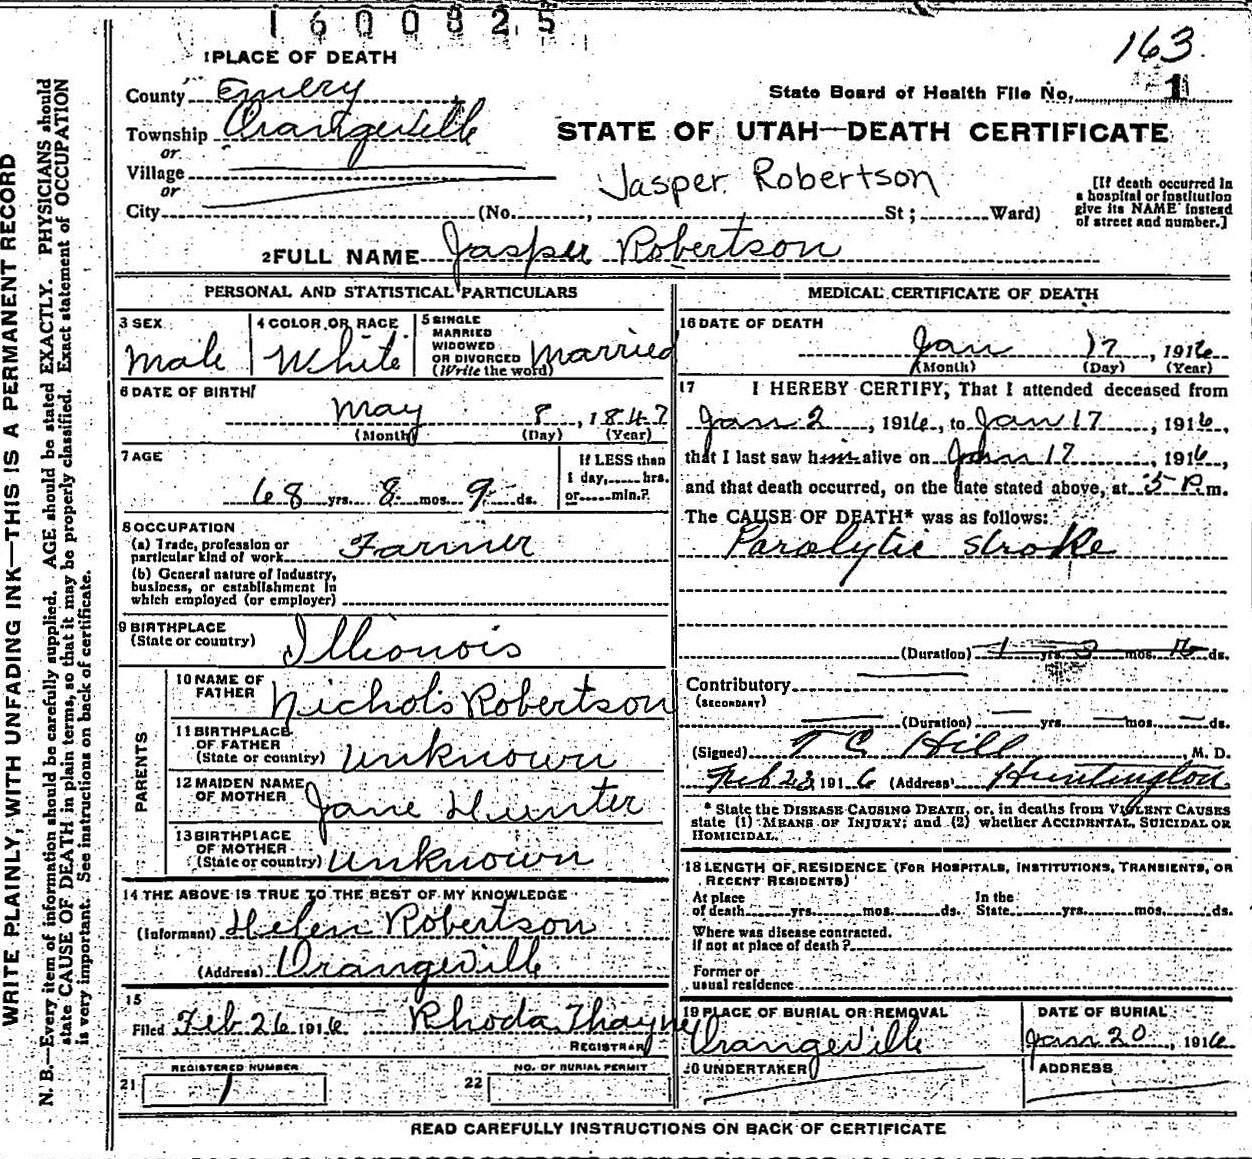 1600825
163.
1 PLACE OF DEATH
County Emery
State Board of Health File No. 1
Township Orangeville
or
STATE OF UTAH—DEATH CERTIFICATE
Village
or
Jasper Robertson
[If death occurred in
a hospital or institution
give its NAME instead
of street and number.]
City (No. , St; Ward)
2 FULL NAME Jasper Robertson
PERSONAL AND STATISTICAL PARTICULARS
3 SEX
Male
4 COLOR OR RACE
White
5 SINGLE
MARRIED
WIDOWED
OR DIVORCED
(Write the word)
Married
6 DATE OF BIRTH
May 8, 1847
(Month) (Day) (Year)
7 AGE
68 yrs. 8 mos. 9 ds.
If LESS than
1 day, hrs.
or min.?
8 OCCUPATION
(a) Trade, profession or
particular kind of work Farmer
(b) General nature of industry,
business, or establishment in
which employed (or employer)
9 BIRTHPLACE
(State or country) Illionois
PARENTS
10 NAME OF
FATHER Nichols Robertson
11 BIRTHPLACE
OF FATHER
(State or country) Unknown
12 MAIDEN NAME
OF MOTHER Jane Hunter
13 BIRTHPLACE
OF MOTHER
(State or country) Unknown
14 THE ABOVE IS TRUE TO THE BEST OF MY KNOWLEDGE
(Informant) Helen Robertson
(Address) Orangeville
15
Filed Feb 26 1916 Rhoda Thayne
REGISTRAR
REGISTERED NUMBER
21 1
NO. OF BURIAL PERMIT
22
MEDICAL CERTIFICATE OF DEATH
16 DATE OF DEATH
Jan 17, 1916
(Month) (Day) (Year)
17 I HEREBY CERTIFY, That I attended deceased from
Jan 2, 1916, to Jan 17, 1916,
that I last saw him alive on Jan 17, 1916,
and that death occurred, on the date stated above, at 5 P.m.
The CAUSE OF DEATH* was as follows:
Paralytic stroke
(Duration) 1 yrs. 3 mos. 16 ds.
Contributory
(SECONDARY)
(Duration) yrs. mos. ds.
(Signed) T C Hill, M. D.
Feb 23 1916 (Address) Huntington
* State the DISEASE CAUSING DEATH, or, in deaths from VIOLENT CAUSES
state (1) MEANS OF INJURY; and (2) whether ACCIDENTAL, SUICIDAL OR
HOMICIDAL.
18 LENGTH OF RESIDENCE (FOR HOSPITALS, INSTITUTIONS, TRANSIENTS, OR
RECENT RESIDENTS)
At place
of death yrs. mos. ds.
In the
State yrs. mos. ds.
Where was disease contracted.
if not at place of death?
Former or
usual residence
19 PLACE OF BURIAL OR REMOVAL
Orangeville
DATE OF BURIAL
Jan 20, 1916.
20 UNDERTAKER
ADDRESS
READ CAREFULLY INSTRUCTIONS ON BACK OF CERTIFICATE
WRITE PLAINLY, WITH UNFADING INK—THIS IS A PERMANENT RECORD
N. B.—Every item of information should be carefully supplied. AGE should be stated EXACTLY. PHYSICIANS should
state CAUSE OF DEATH in plain terms, so that it may be properly classified. Exact statement of OCCUPATION
is very important. See instructions on back of certificate.